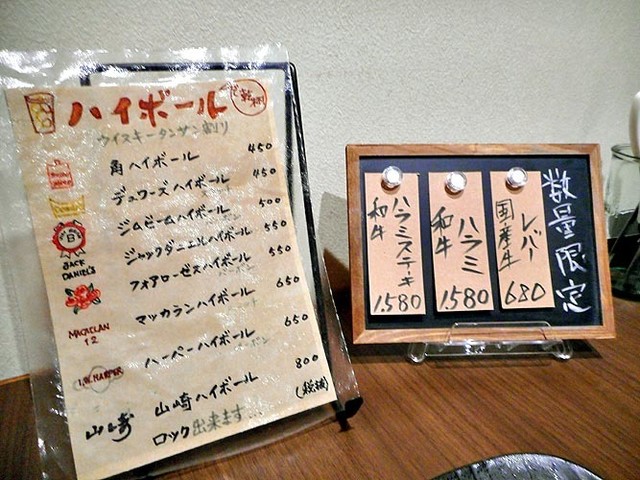 ハイボール
で乾杯
ウイスキータンサン割り
角ハイボール 450
デュワーズハイボール 450
ジムビームハイボール 500
ジャックダニエルハイボール 550
フォアローゼスハイボール 550
マッカランハイボール 650
ハーパーハイボール 650
山崎ハイボール 800
ロック出来ます… (税抜)
JACK
DANIEL'S
MACALLAN
12
I.W.HARPER
山崎
数量限定
国産牛 レバー 680
和牛 ハラミ 1580
和牛 ハラミステーキ 1580